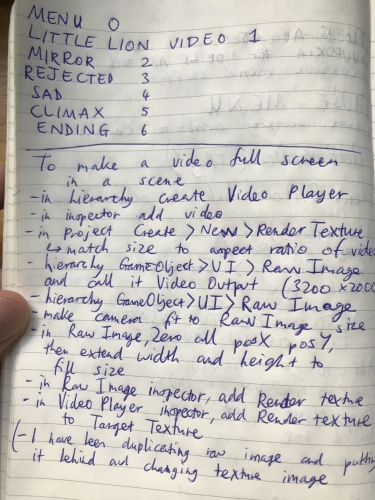 MENU 0
LITTLE LION VIDEO 1
MIRROR 2
REJECTED 3
SAD 4
CLIMAX 5
ENDING 6
To make a video full screen
in a scene
- in hierarchy create Video Player
- in inspector add video
- in Project Create > New > Render Texture
↳ match size to aspect ratio of video
- hierarchy GameObject > UI > Raw Image
and call it Video Output (3200 x 2000
- hierarchy GameObject > UI > Raw Image
- make camera fit to Raw Image size
- in Raw Image, Zero all posX posY,
then extend width and height to
fill size
- in Raw Image inspector, add Render texture
- in Video Player inspector, add Render texture
to Target Texture
(- I have been duplicating raw image and putting
it behind and changing texture image